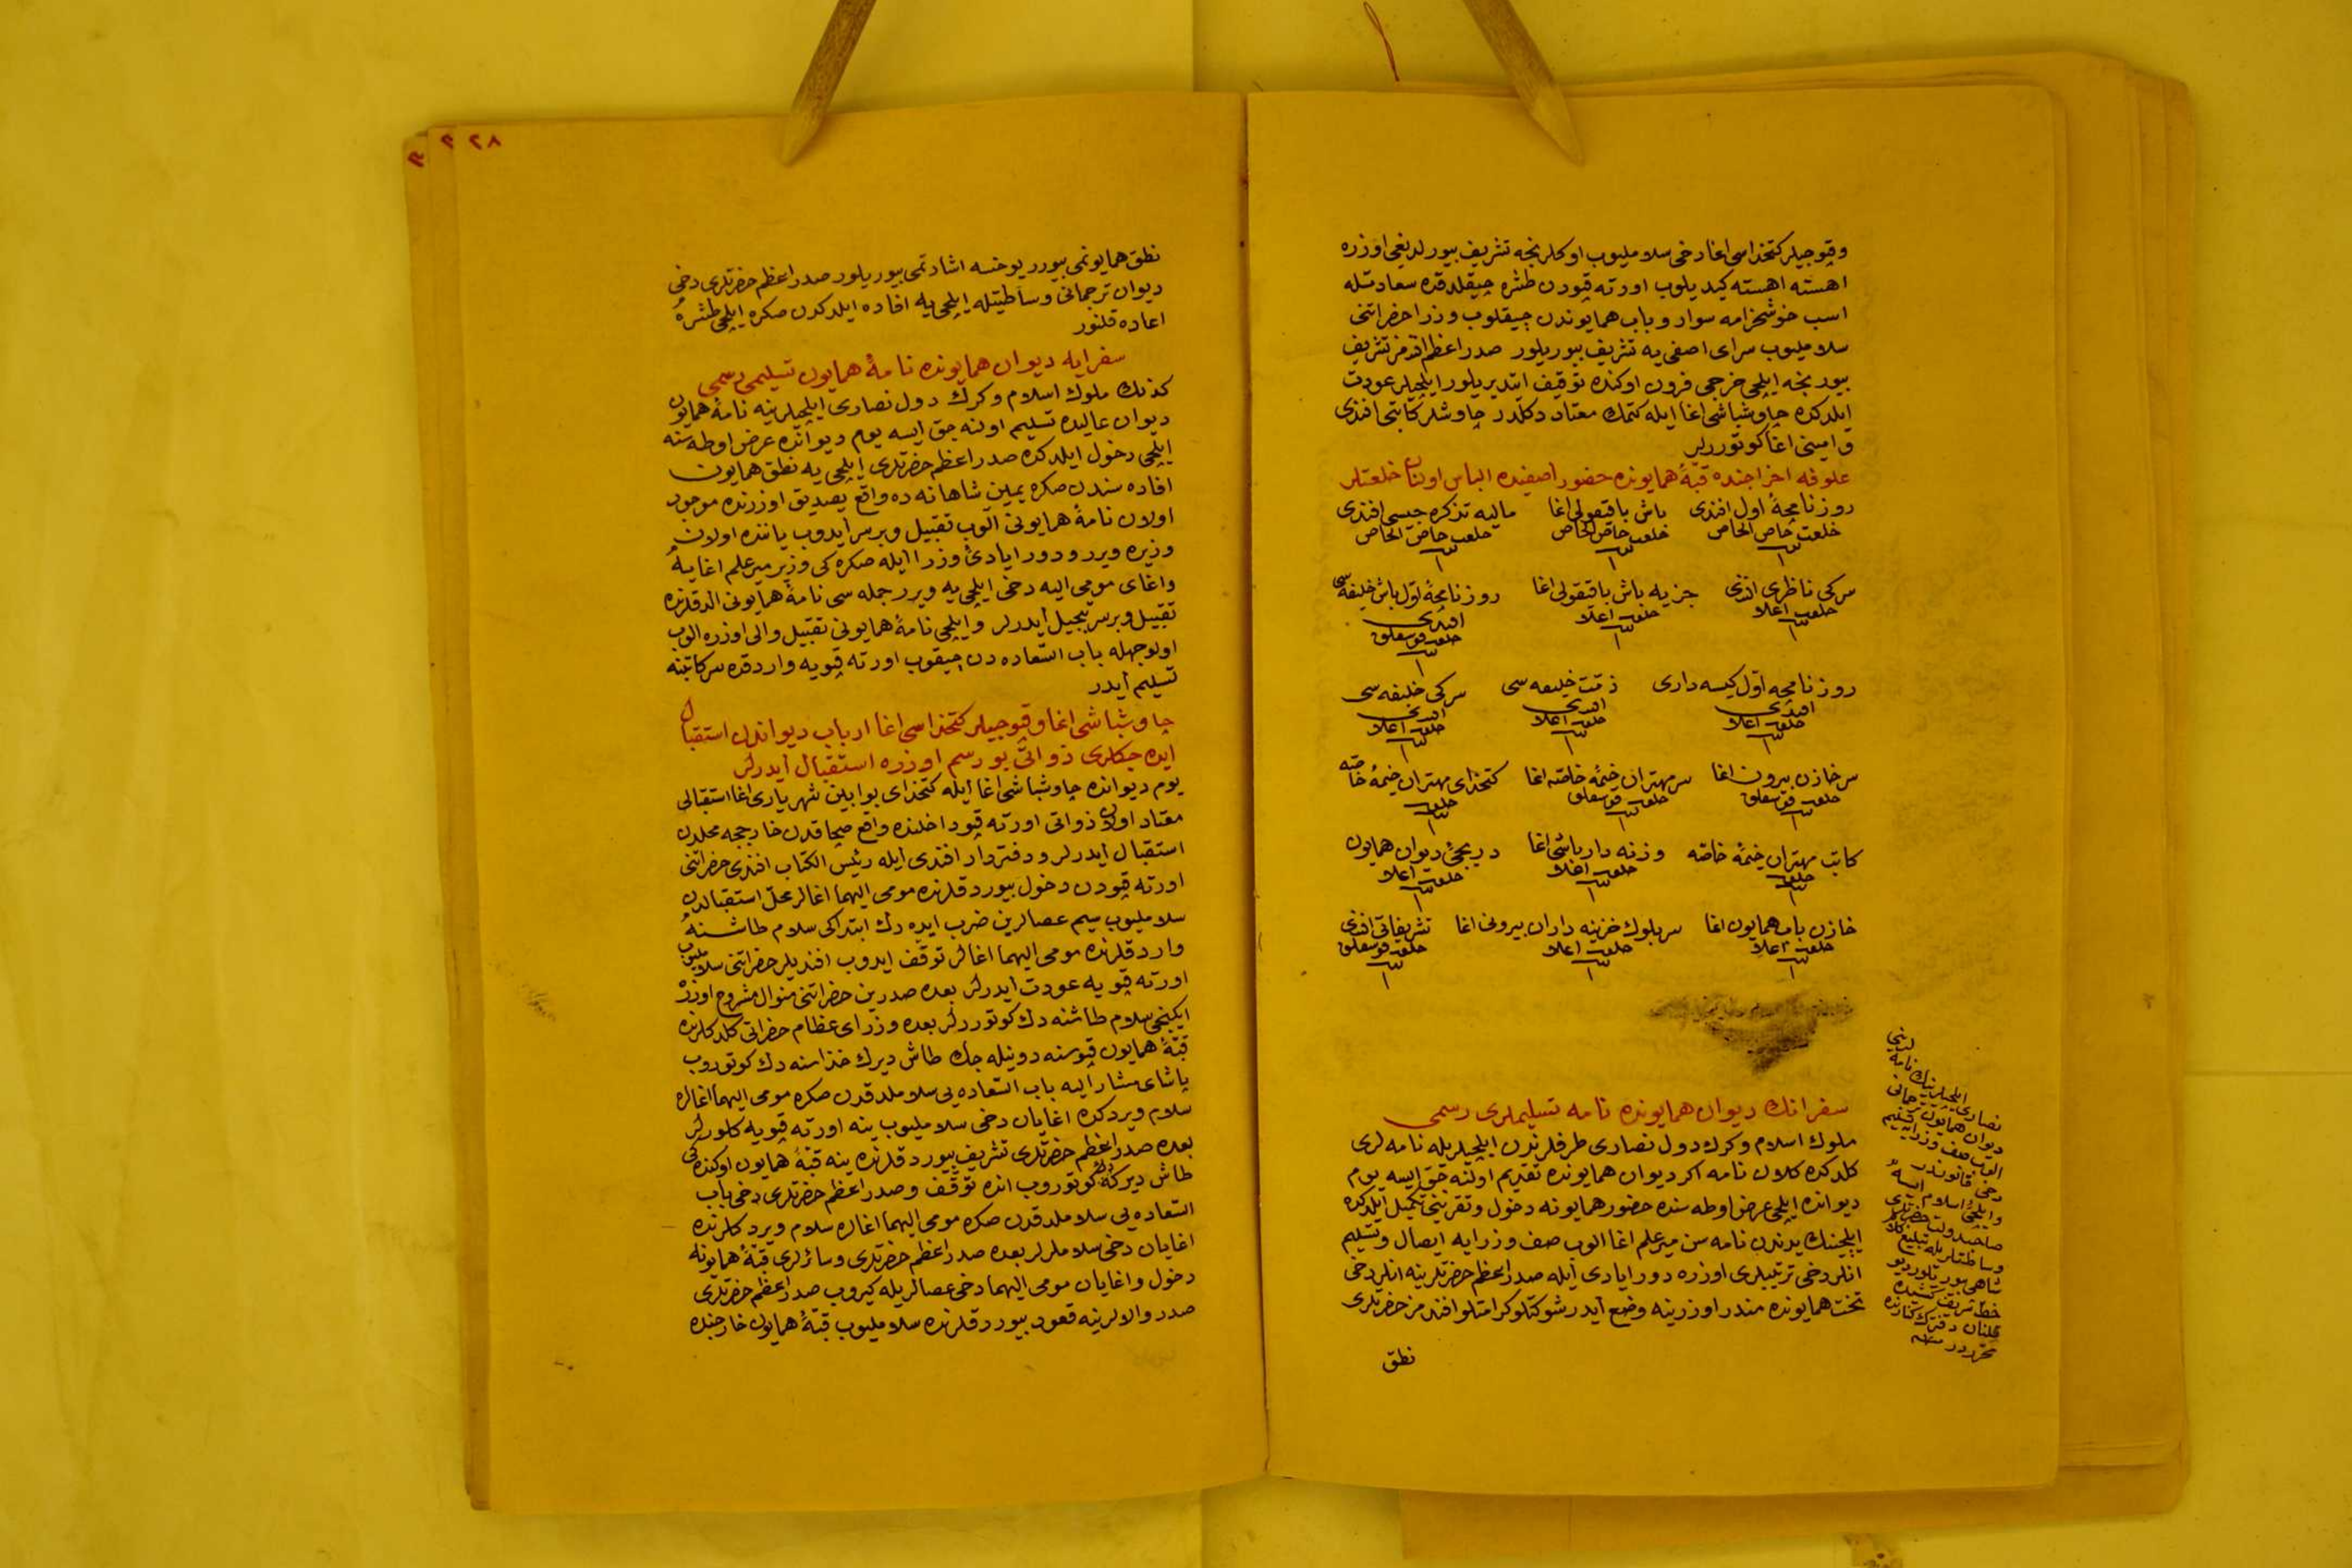 وقپوجيلر كتخداسى اغا دخى سلامليوب اوكلرنجه تشريف بيورلديغى اوزره
اهسته اهسته كيديلوب اورته قپودن طشره چيقلدقده سعادتله
اسب خوشخرامه سوار و باب همايوندن چيقلوب وزرا حضراتنى
سلامليوب سراى اصفى يه تشريف بيوريلور صدر اعظم افندمز تشريف
بيورنجه ايلچى خرجى فرون اوكنده توقيف ايتديريلور ايلچيلر عودت
ايلدكده چاوشباشى اغا ايله كتمك معتاد دكلدر چاوشلر كاتبى افندى
و امينى اغا كوتوررلر
علوفه اخراجنده قبهٔ همايونده حضور اصفيده الباس اولنان خلعتلر
روزنامچهٔ اول افندى باش باقيقولى اغا ماليه تذكره جيسى افندى
خلعت خاص الخاص خلعت خاص الخاص خلعت خاص الخاص
١ ١ ١
سركى ناظرى افندى جزيه باش باقيقولى اغا روزنامچهٔ اول باش خليفه سى
افندى
خلعت اعلا خلعت اعلا خلعت قوشقلق
١ ١ ١
روزنامچه اول كيسه دارى ذمت خليفه سى سركى خليفه سى
افندى افندى افندى
خلعت اعلا خلعت اعلا خلعت اعلا
١ ١ ١
سرخازن بيرون اغا سرمهتران خيمهٔ خاصه اغا كتخداى مهتران خيمهٔ خاصه
خلعت قوشقلق خلعت قوشقلق خلعت
١ ١ ١
كاتب مهتران خيمهٔ خاصه وزنه دار باشى اغا دربجئ ديوان همايون
خلعت خلعت اعلا خلعت اعلا
١ ١ ١
خازن باب همايون اغا سربلوك خزينه داران بيرونى اغا تشريفاتى افندى
خلعت اعلا خلعت اعلا خلعت قوشقلق
١ ١ ١
سفرانك ديوان همايونده نامه تسليملرى رسمى
ملوك اسلام و كرك دول نصارى طرفلرندن ايلچيلريله نامه لرى
كلدكده كلان نامه اكر ديوان همايونده تقديم اولنه جق ايسه يوم
ديوانده ايلچى عرض اوطه سنده حضور همايونه دخول و تقرينى تكميل ايلدكده
ايلچينك يدندن نامه سن ميرعلم اغا الوب صف وزرايه ايصال و تسليم
انلر دخى ترتيبلرى اوزره دور ايادى ايله صدر اعظم حضرتلرينه انلر دخى
تخت همايونده مندر اوزرينه وضع ايدر شوكتلو كرامتلو افندمز حضرتلرى
نطق
نصارى ايلچيلرينك نامه
ديوان همايون ترجمانى
الوب صف وزرايه تسليم
دخى قانوندر
و ايلچئ اسلام ايسه
صاحبدولت حضرتلرى
وساطتلريله تبليغ
شاهى بيوريلور
خط شريف
دفترك كنارنده
محرردر
٢٨
نطق همايونمى بيورر يوخسه اشارتمى بيوريلور صدر اعظم حضرتلرى دخى
ديوان ترجمانى وساطتيله ايلچى يه افاده ايلدكدن صكره ايلچى طشره
اعاده قلنور
سفرايه ديوان همايونده نامهٔ همايون تسليمى رسمى
كذلك ملوك اسلام و كرك دول نصارى ايلچيلرينه نامهٔ همايون
ديوان عاليده تسليم اولنه جق ايسه يوم ديوانده عرض اوطه سنه
ايلچى دخول ايلدكده صدر اعظم حضرتلرى ايلچى يه نطق همايون
افاده سندن صكره يمين شاهانه ده واقع يصديق اوزرنده موجود
اولان نامهٔ همايونى الوب تقبيل و بر سر ايدوب ياننده اولان
وزيره ويرر و دور ايادئ وزرا ايله صكره كى وزير ميرعلم اغايه
و اغاى مومى اليه دخى ايلچى يه ويرر جمله سى نامهٔ همايونى الدقلرنده
تقبيل و بر سر تبجيل ايدرلر و ايلچى نامهٔ همايونى تقبيل و الى اوزره الوب
اولوجهله باب السعاده دن چيقوب اورته قپويه واردقده سركاتبنه
تسليم ايدر
چاوشباشى اغا و قپوجيلر كتخداسى اغا ارباب ديواندن استقبال
ايده جكلرى ذواتى بو رسم اوزره استقبال ايدرلر
يوم ديوانده چاوشباشى اغا ايله كتخداى بوابين شهريارى اغا استقبالى
معتاد اولان ذواتى اورته قپو داخلنده واقع صچاقدن خارججه محلدن
استقبال ايدرلر و دفتردار افندى ايله رئيس الكتاب افندى حضراتنى
اورته قپودن دخول بيوردقلرنده مومى اليهما اغالر محل استقبالدن
سلامليوب سيم عصالرين ضرب ايده رك ابتداكى سلام طاشنه
واردقلرنده مومى اليهما اغالر توقف ايدوب افنديلر حضراتنى سلامليوب
اورته قپويه عودت ايدرلر بعده صدرين حضراتنى منوال مشروح اوزره
ايكنجى سلام طاشنه دك كوتوررلر بعده وزراى عظام حضراتى كلدكلرنده
قبهٔ همايون قپوسنه دونيله جك طاش ديرك حذاسنه دك كوتوروب
پاشاى مشار اليه باب السعاده يى سلاملدقدن صكره مومى اليهما اغالره
سلام ويردكده اغايان دخى سلامليوب ينه اورته قپويه كلورلر
بعده صدر اعظم حضرتلرى تشريف بيوردقلرنده ينه قبهٔ همايون اوكنده كى
طاش ديركه دك كوتوروب انده توقف و صدر اعظم حضرتلرى دخى باب
السعاده يى سلاملدقدن صكره مومى اليهما اغالره سلام ويردكلرنده
اغايان دخى سلاملرلر بعده صدر اعظم حضرتلرى و سائرلرى قبهٔ همايونه
دخول و اغايان مومى اليهما دخى عصالريله كيروب صدر اعظم حضرتلرى
صدر والالرينه قعود بيوردقلرنده سلامليوب قبهٔ همايون خارجنده